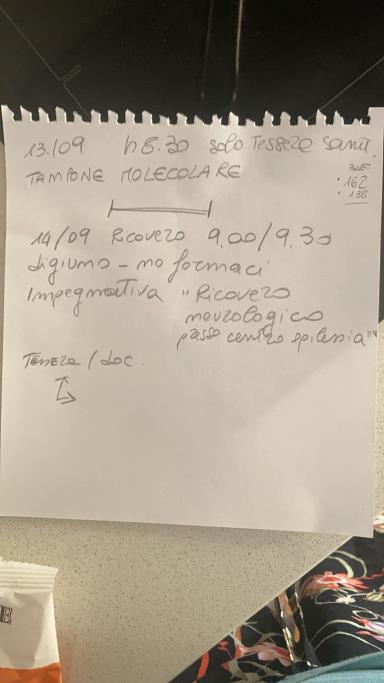 13.09 h8.30 solo Tessera sanit.
TAMPONE MOLECOLARE
162
138
14/09 Ricovero 9,00/9,30
digiuno - no farmaci
Impegnativa "Ricovero
neurologico
presso centro epilessia"
Tessera/doc